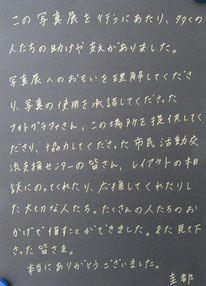 この写真展を行うにあたり、多くの
人たちの助けや支えがありました。
写真展へのおもいを理解してくださ
り、写真の使用を承諾してくださった
フォトグラファさん、この場所を提供してく
ださり、協力してくださった市民活動交
流支援センターの皆さん、レイアウトの相
談にのってくれたり、応援してくれたりし
た大切な人たち。たくさんの人たちのお
かげで催すことができました。また見て下
さった皆さま。
本当にありがとうございました。